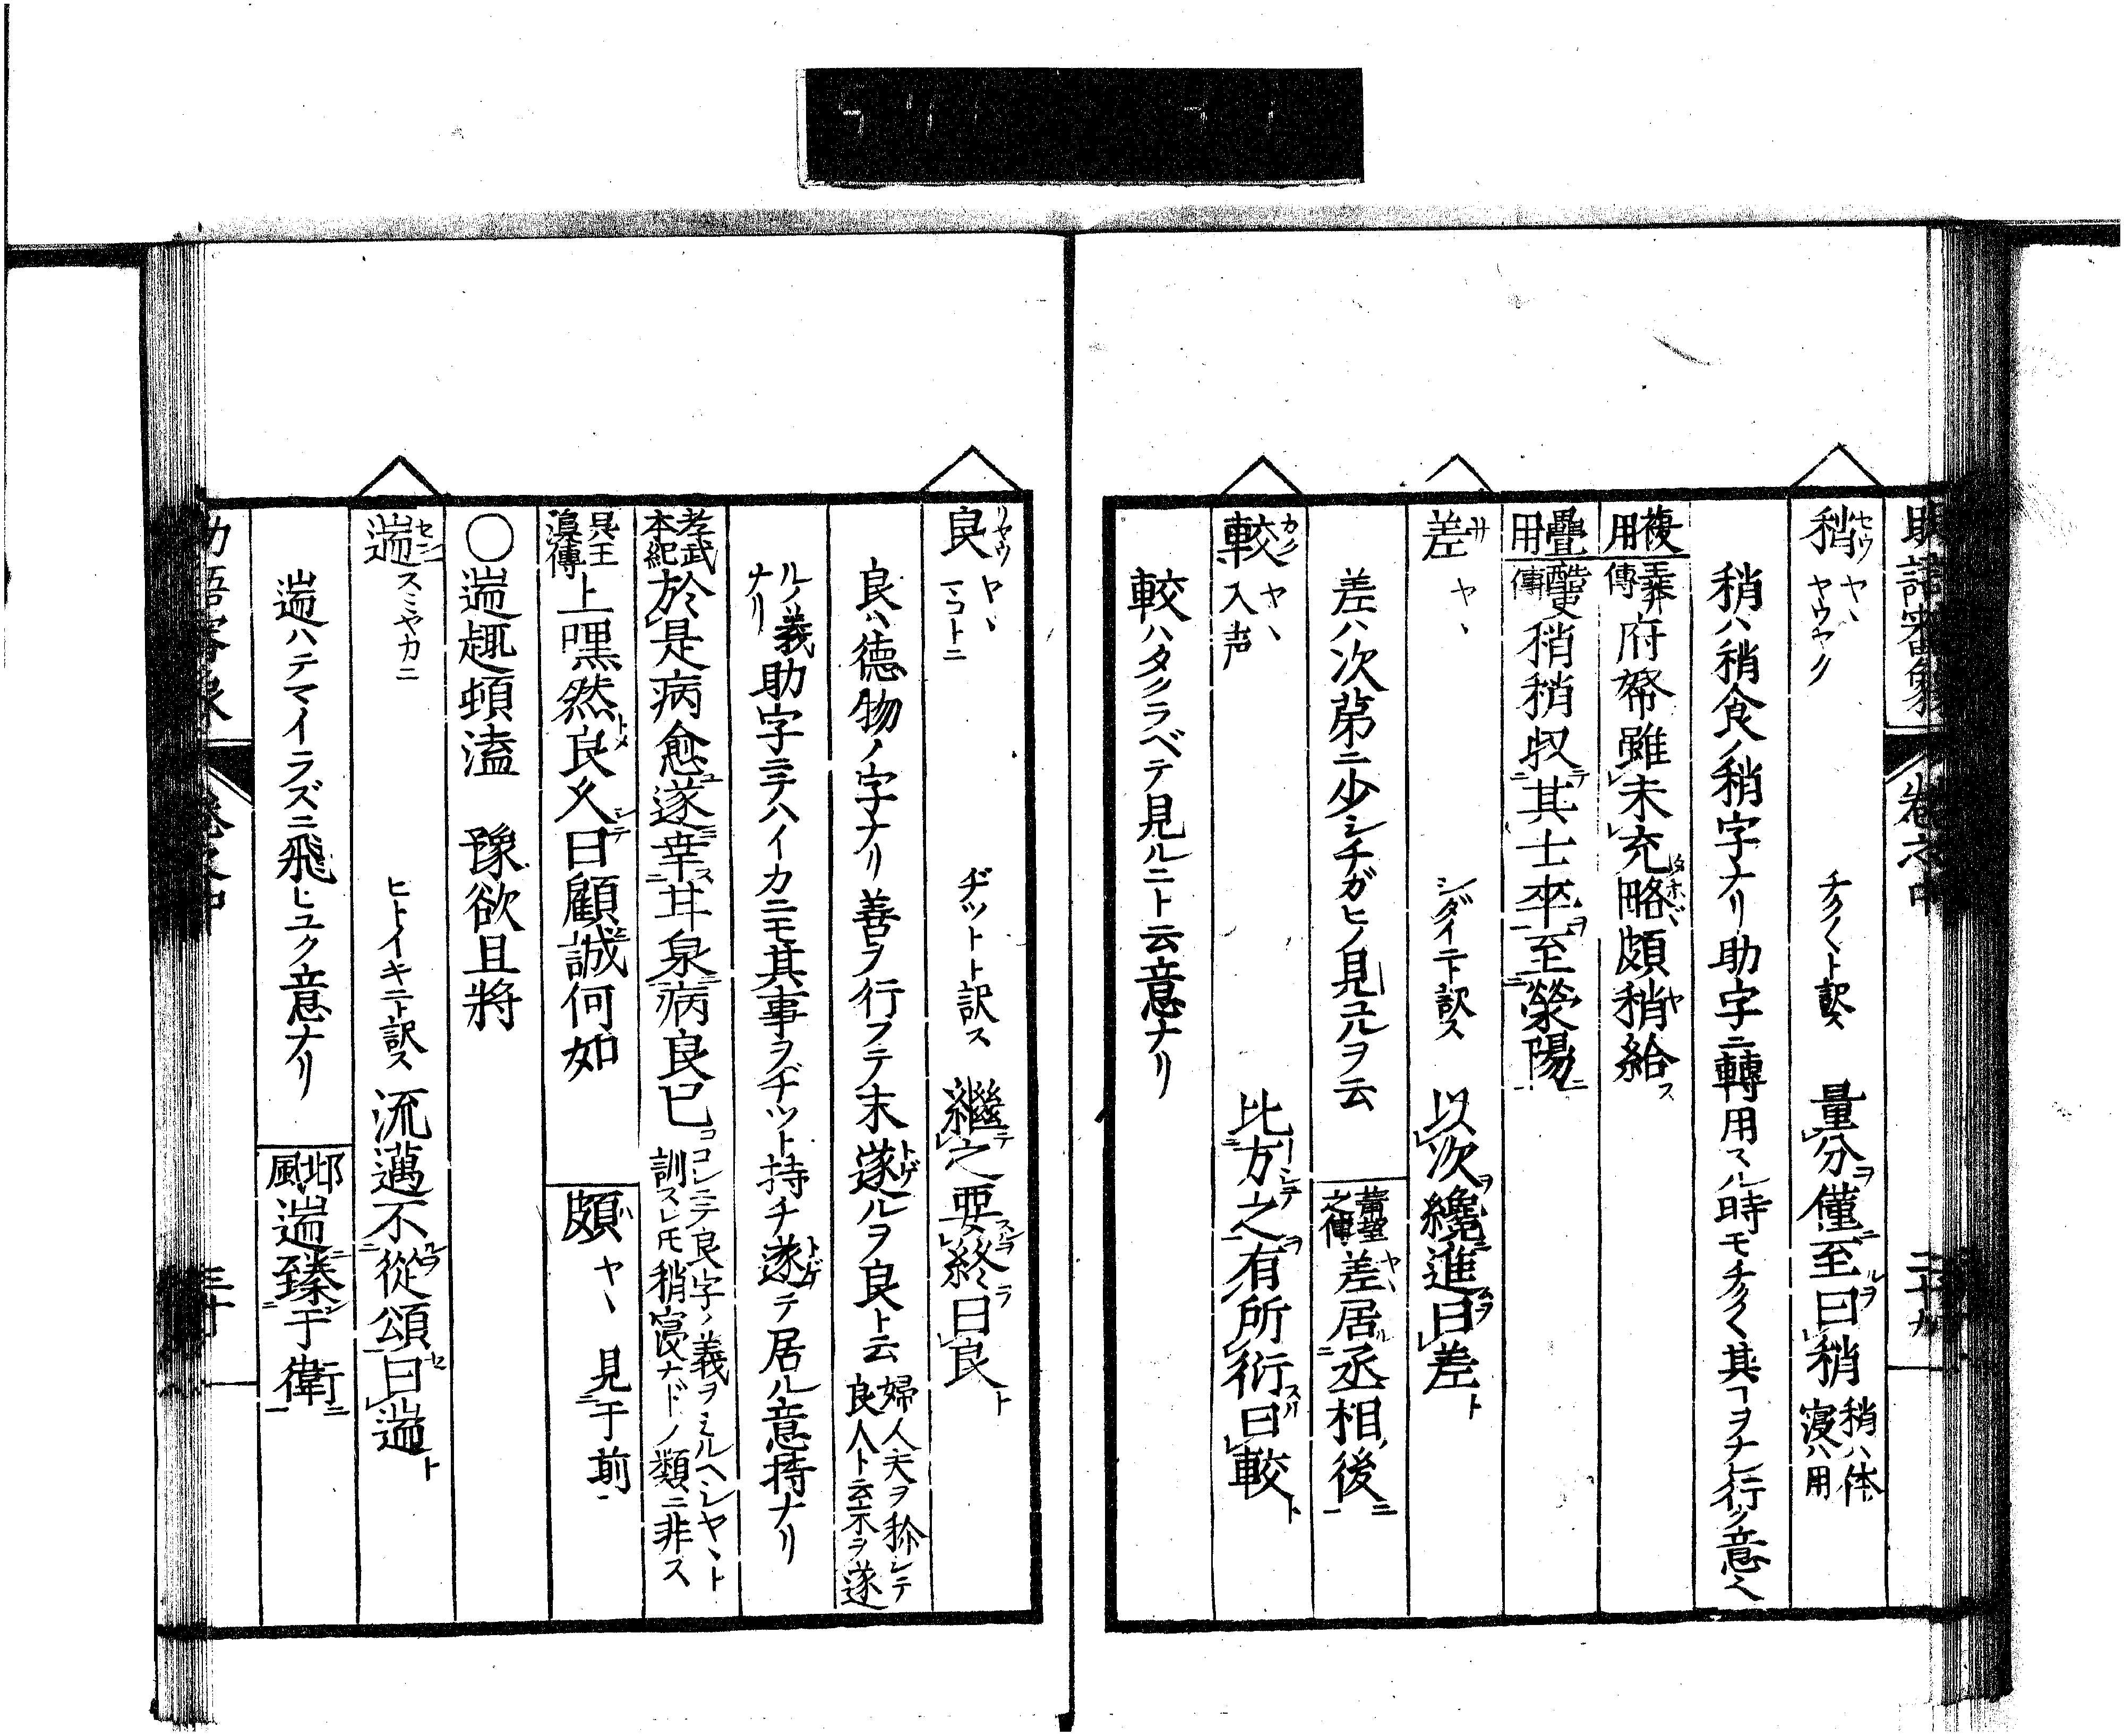 助語審象 卷之中 二十九
稍 セウ ヤヽ ヤウヤク チク〱ト訳ス 量分僅至曰稍 稍ハ体 寖ハ用
稍ハ稍食ノ稍字ナリ助字ニ轉用スル時モチク〱其ヿヲナシ行ク意也
複用 王莽傳 府帑雖未充略頗稍給
疊用 酷吏傳 稍稍收其士卒至滎陽
差 サ ヤヽ シダイニト訳ス 以次纔進曰差ト
差ハ次第ニ少シチガヒノ見ユルヲ云 蕭望之傳 差居丞相後
較 カク ヤヽ 入声 比方之有所衍曰較ト
較ハタクラベテ見ルニト云意ナリ
良 リヤウ ヤヽ マコトニ ヂツトト訳ス 繼之要終曰良ト
良ハ德物ノ字ナリ善ヲ行フテ末遂ルヲ良ト云 婦人夫ヲ称シテ良人ト云亦ヲ遂
ルノ義ナリ 助字ニテハイカニモ其事ヲヂツト持チ遂テ居ル意持ナリ
孝武本紀 於是病愈遂幸甘泉病良已 コヽニテ良字ノ義ヲミルヘシヤヽト訓スレ𪜈稍寖ナドノ類ニ非ス
吳王濞傳 上嘿然良久曰顧誠何如 頗 ヤヽ 見于前
〇遄趣頓溘 豫欲且將
遄 セン スミヤカニ ヒトイキニト訳ス 流邁不從頌曰遄ト
遄ハテマイラズニ飛ヒユク意ナリ 邶風 遄臻于衛
助語審象 卷之中 三十